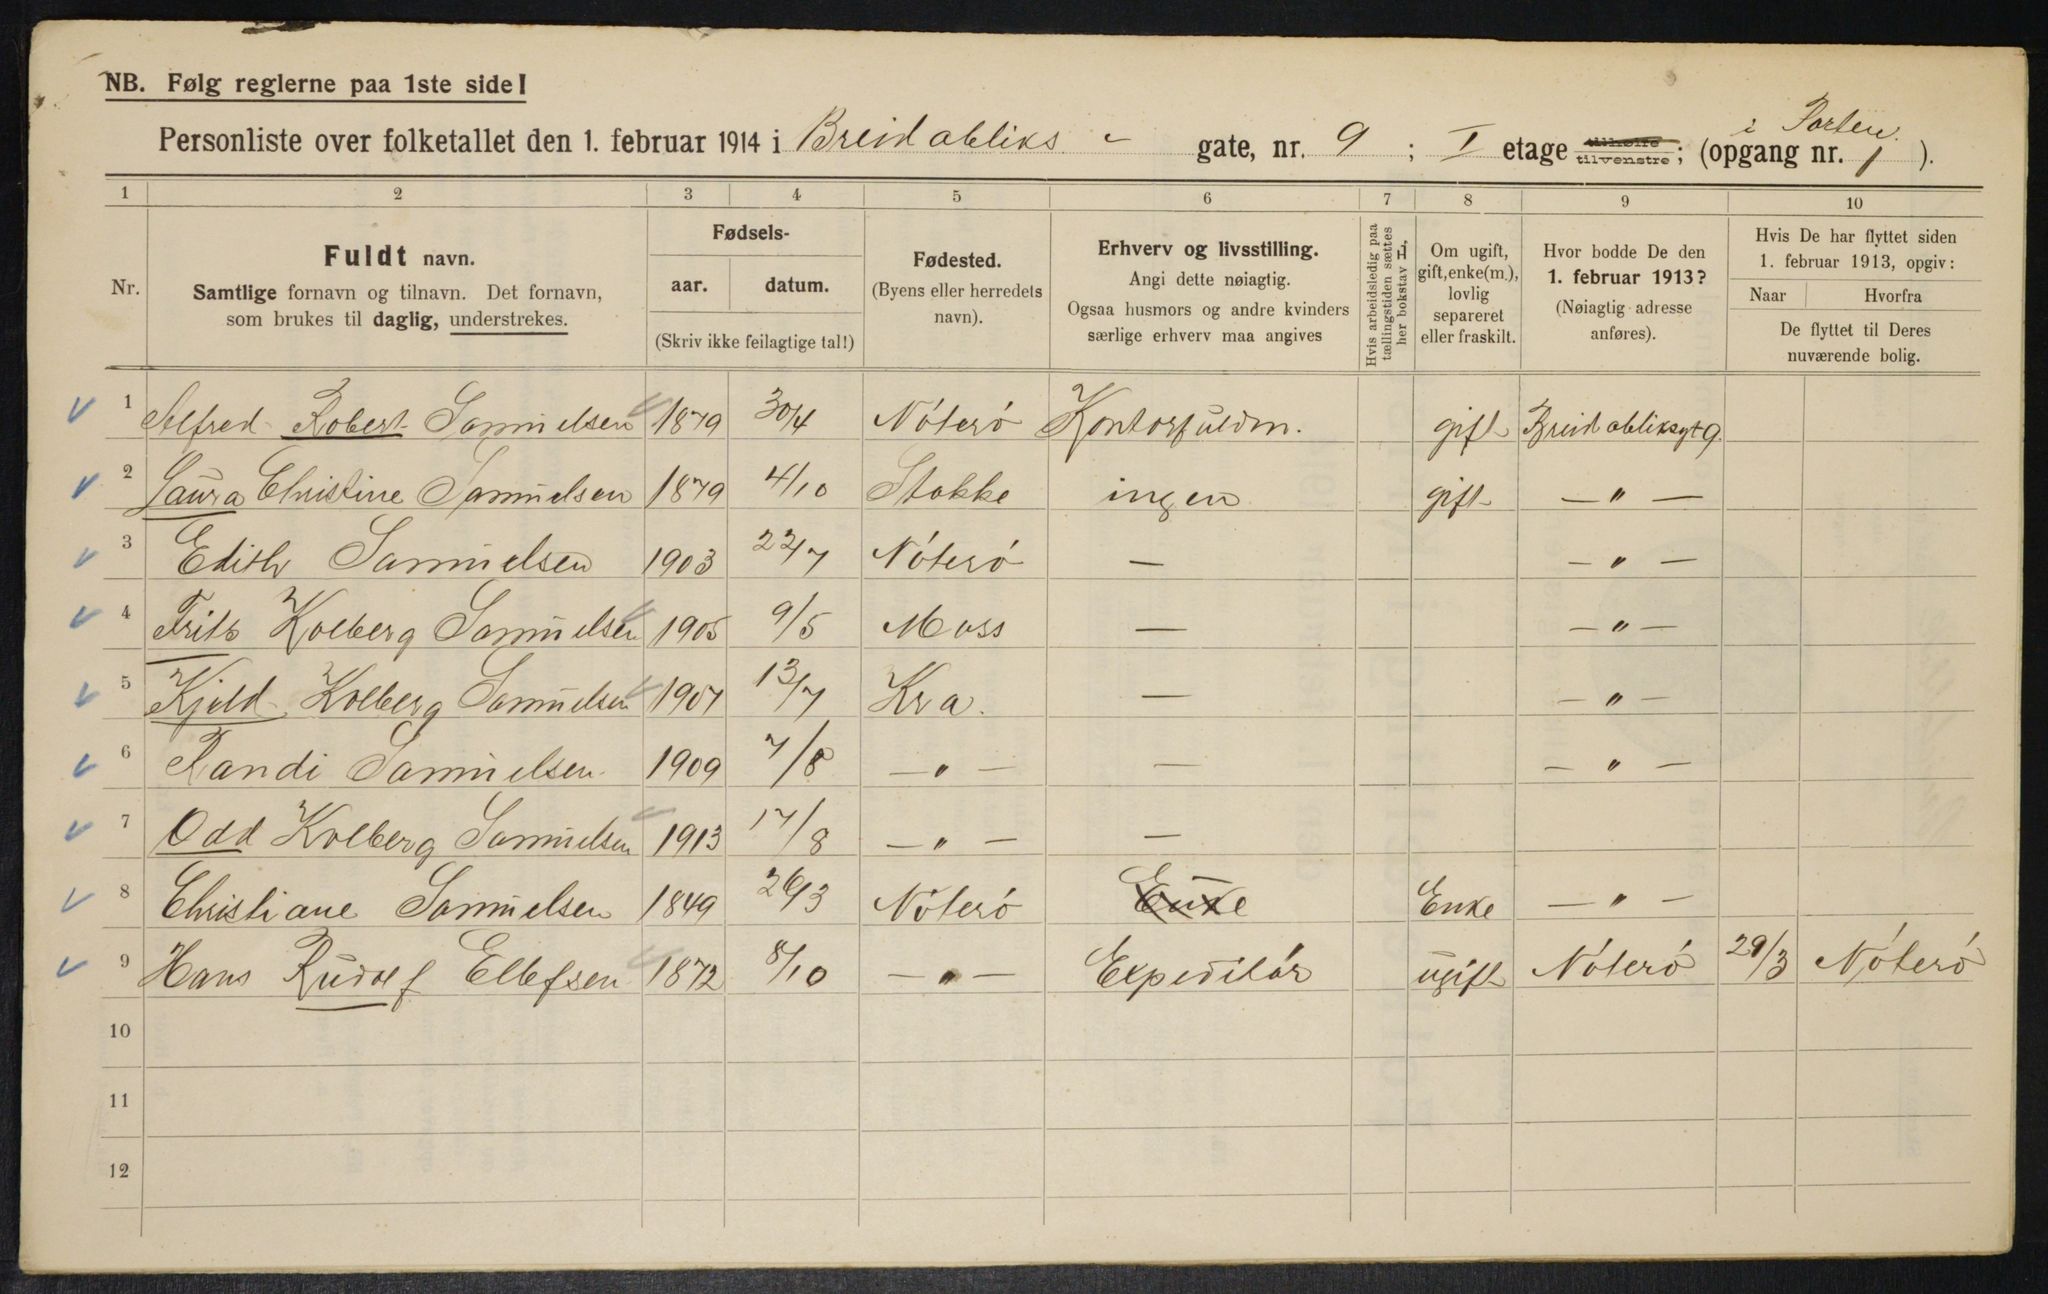 NB. Følg reglerne paa 1ste side!
i Porten.
Personliste over folketallet den 1. februar 1914 i Breidabliks - gate, nr. 9 ; I etage tilhøire tilvenstre ; (opgang nr. 1 ).
1 2 3 4 5 6 7 8 9 10
Nr.
Fuldt navn.
Samtlige fornavn og tilnavn. Det fornavn,
som brukes til daglig, understrekes.
Fødsels-
aar. datum.
(Skriv ikke feilagtige tal!)
Fødested.
(Byens eller herredets
navn).
Erhverv og livsstilling.
Angi dette nøiagtig.
Ogsaa husmors og andre kvinders
særlige erhverv maa angives
Hvis arbeidsledig paa
tællingstiden sættes
her bokstav L.
Om ugift,
gift, enke(m.),
lovlig
separeret
eller fraskilt.
Hvor bodde De den
1. februar 1913?
(Nøiagtig adresse
anføres).
Hvis De har flyttet siden
1. februar 1913, opgiv:
Naar Hvorfra
De flyttet til Deres
nuværende bolig.
1 Alfred Robert Samuelsen 1879 30/4 Nøterø Kontorfuldm. gift Breidabliksgt 9.
2 Laura Christine Samuelsen 1879 4/10 Stokke ingen gift — " —
3 Edith Samuelsen 1903 22/7 Nøterø — — " —
4 Frits Kolberg Samuelsen 1905 9/5 Moss — — " —
5 Kjeld Kolberg Samuelsen 1907 13/7 Kra. — — " —
6 Randi Samuelsen 1909 7/8 — " — — — " —
7 Odd Kolberg Samuelsen 1913 17/8 — " — —
8 Christiane Samuelsen 1849 26/3 Nøterø Enke Enke — " —
9 Hans Rudolf Ellefsen 1872 8/10 — " — Expeditør ugift Nøterø 29/3 Nøterø
10
11
12